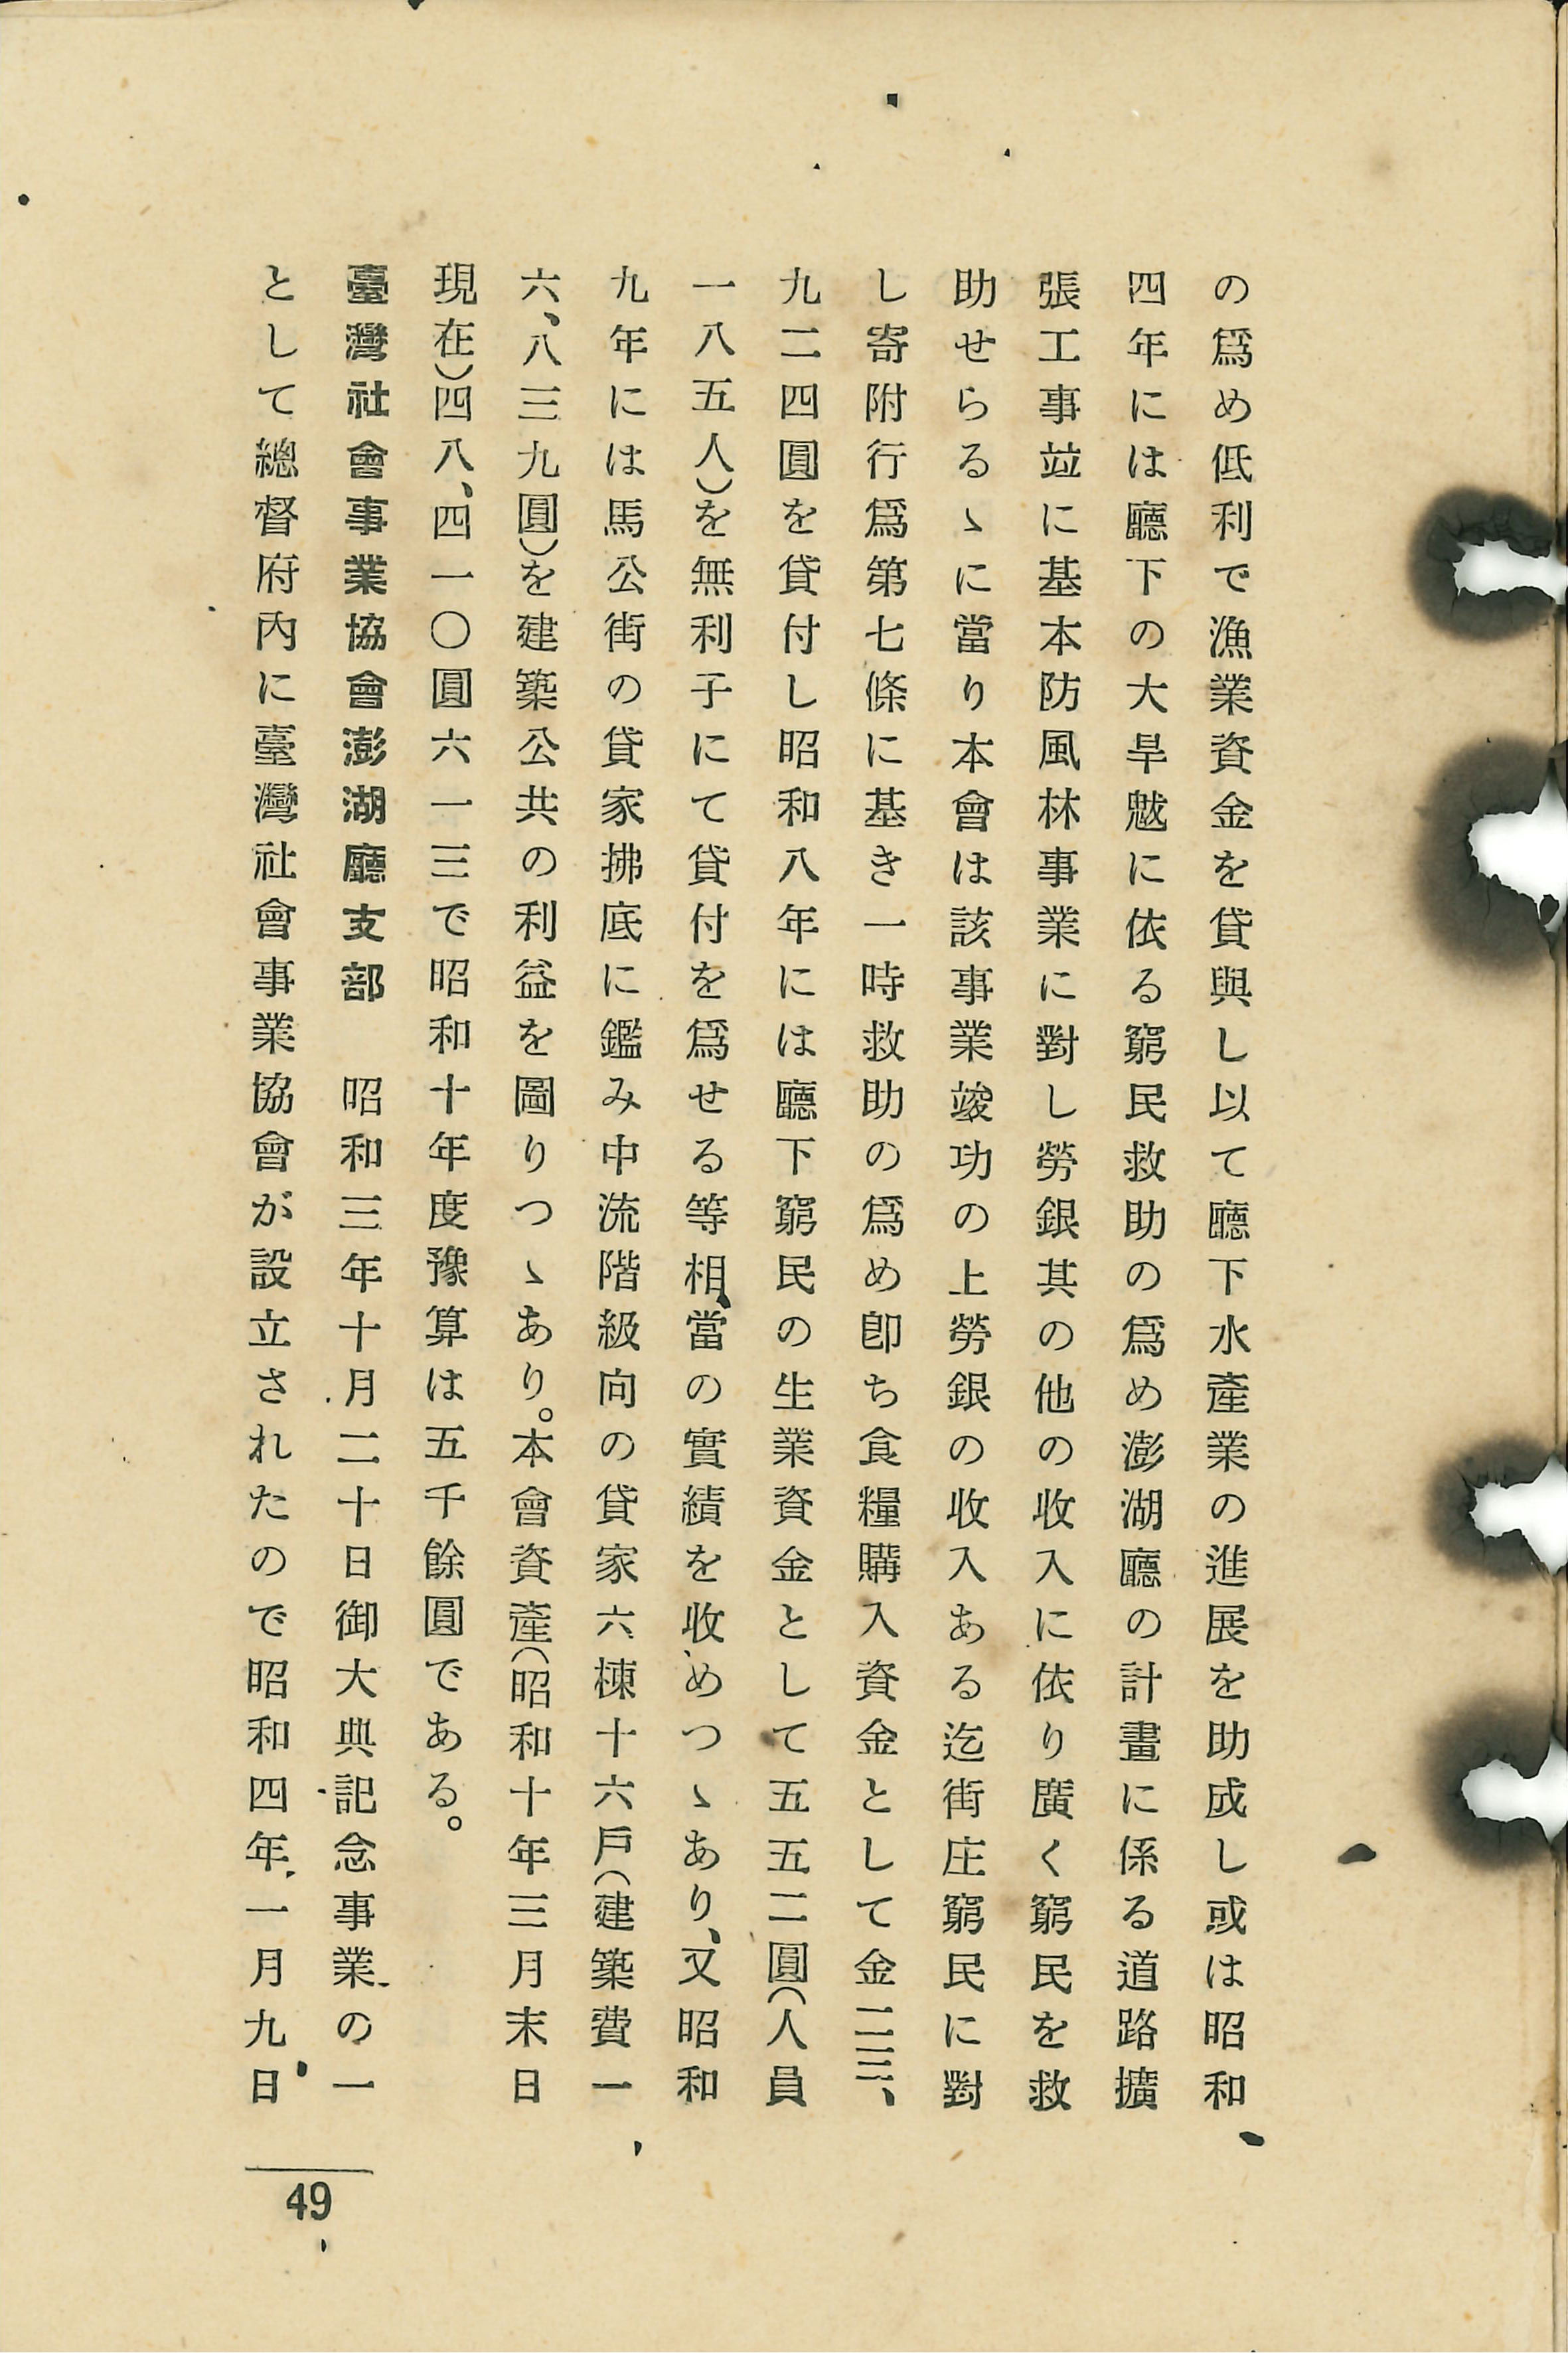 の爲め低利で漁業資金を貸與し以て廳下水產業の進展を助成し或は昭和
四年には廳下の大旱魃に依る窮民救助の爲め澎湖廳の計畫に係る道路擴
張工事竝に基本防風林事業に對し勞銀其の他の收入に依り廣く窮民を救
助せらるゝに當り本會は該事業竣功の上勞銀の收入ある迄街庄窮民に對
し寄附行爲第七條に基き一時救助の爲め卽ち食糧購入資金として金二三、
九二四圓を貸付し昭和八年には廳下窮民の生業資金として五五二圓(人員
一八五人)を無利子にて貸付を爲せる等相當の實績を收めつゝあり、又昭和
九年には馬公街の貸家拂底に鑑み中流階級向の貸家六棟十六戶(建築費一
六、八三九圓)を建築公共の利益を圖りつゝあり。本會資產(昭和十年三月末日
現在)四八、四一〇圓六一三で昭和十年度豫算は五千餘圓である。
臺灣社會事業協會澎湖廳支部　昭和三年十月二十日御大典記念事業の一
として總督府內に臺灣社會事業協會が設立されたので昭和四年一月九日
49